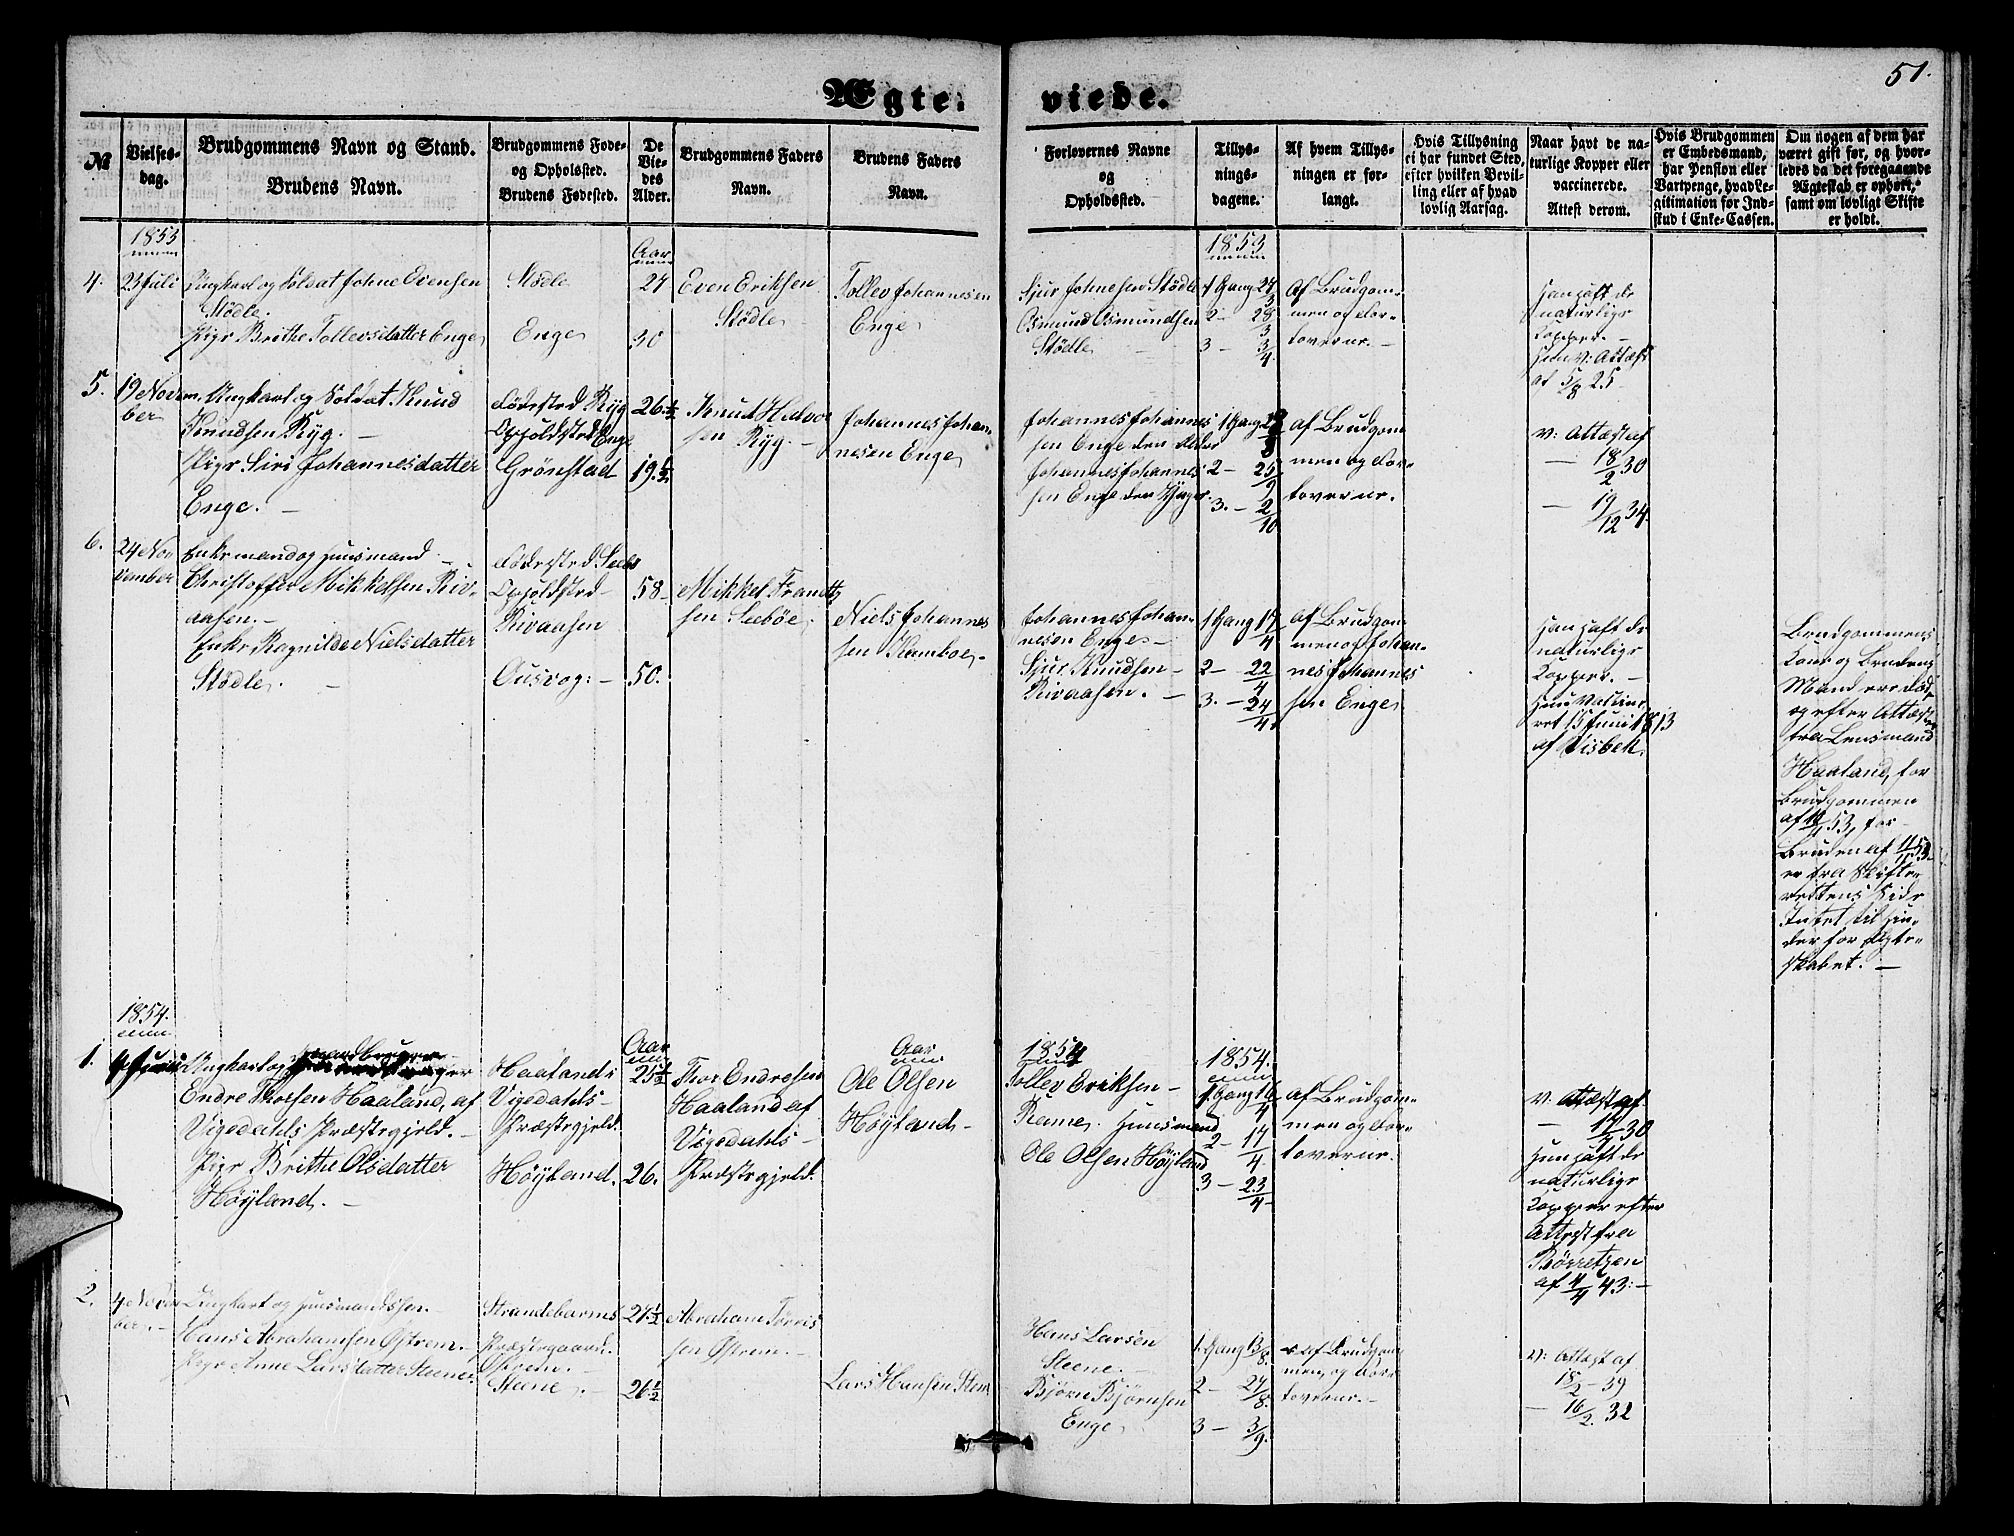 51.
Ægte- viede.
№
Vielses-
dag.
Brudgommens Navn og Stand.
Brudens Navn.
Brudgommens Føde-
og Opholdsted.
Brudens Fødested.
De
Vie-
des
Alder.
Brudgommens Faders
Navn.
Brudens Faders
Navn.
Forlovernes Navne
og
Opholdsted.
Tillys-
nings-
dagene.
Af hvem Tillys-
ningen er for-
langt.
Hvis Tillysning
ei har fundet Sted,
efter hvilken Bevil-
ling eller af hvad
lovlig Aarsag.
Naar havt de na-
turlige Kopper eller
vaccinerede.
Attest derom.
Hvis Brudgommen
er Embedsmand,
har Pension eller
Vartpenge, hvad Le-
gitimation for Ind-
skud i Enke-Cassen.
Om nogen af dem har
været gift før, og hvor-
ledes da det foregaaende
Ægteskab er ophørt,
samt om lovligt Skifte
er holdt.
1853
Aar
1853
4.
23 Juli
Ungkarl og Soldat Johne Evensen
Stødle.
Pige Brithe Tollevsdatter Enge
Stødle
Enge
27
30
Even Eriksen
Stødle
Tollev Johannesen
Enge
Sjur Johnesen Stødle
Osmund Osmundsen
Stødle
1 Gang 27/3
2 - 28/3
3 - 3/4
Af Brudgom-
men og For-
loverne.
Han haft de
naturlige
Kopper.
Hun v: Attest
af 5/8 25
5.
19 Novem-
ber
Ungkarl og Soldat Knud
Knudsen Ryg.
Pige Siri Johannesdatter
Enge.
Fødested Ryg
Opholdsted Enge
Grönstad
26 1/2
19 1/2
Knud Halvor
sen Ryg.
Johannes Johan-
nesen Enge
Johannes Johannes
sen Enge den Ældre
Johannes Johannes
sen Enge den Yngre.
1 Gang
2 - 25/9
3. - 2/10
af Brudgom
men og For-
loverne.
v: Attest af
- 18/2 30
- 19/12 34.
6.
24 Nov
vember
Enkemand og Huusmand
Christoffer Mikkelsen Riv-
aasen.
Enke Ragnilde Nielsdatter
Stødle.
Fødested Seebø
Opholdsted
Rivaasen
Ousvog:
58
50.
Mikkel Frantz
sen Seebøe
Niels Johannes
sen Kamboe.
Johannes Johan-
nesen Enge
Sjur Knudsen
Rivaasen.
1 Gang 17/4
2 - 22/4
3. - 24/4
af Brudgom
men og Johan-
nes Johannes
sen Enge
Han haft de
naturlige
Kopper.
Hun Vaccine-
ret 15 Juni 1813
af Visbek.
Brudgommens
Kone og Brudens
Mand ere død
og efter Attester
fra Lensmand
Haaland, for
Brudgommen
af 53, for
Bruden af 53
er fra Skifte-
rettens Side
Intet til Hin-
der for Ægte-
skabet.
1854.
Aar
Aar
1854
1854.
1.
Ungkarl og
Endre Thorsen Haaland, af
Vigedahls Præstegjeld.
Pige Brithe Olsdatter
Höyland.
Haaland i
Vigedahls
Præstegjeld.
Höyland.
25 1/2
26.
Thor Endresen
Haaland af
Vigedahls
Præstegjeld.
Ole Olsen
Höyland
Tollev Eriksen
Rame. Huusmand
Ole Olsen Höyland
1 Gang 16/4
2 - 17/4
3 - 23/4
af Brudgom-
men og For-
loverne.
v: Attest af
- 30
Hun haft de
naturlige
Kopper efter
Attest fra
Börretzen
af 4/4 43:
2.
4 Novem
ber.
Ungkarl og Huusmandssøn.
Hans Abrahamsen Østrem.
Pige Anne Larsdatter Steene.
Strandebarms
Præstegaard.
Østrem.
Steene.
27 1/2
26 1/2
Abraham Tørris
sen Østrem.
Lars Hansen Steen
Hans Larsen
Steene.
Bjørn Bjørnsen
Enge
1. Gang 13/8.
2 - 27/8.
3 - 3/9.
af Brudgom
men, og For-
loverne.
v: Attest af
18/2 - 39
- 16/2. 32